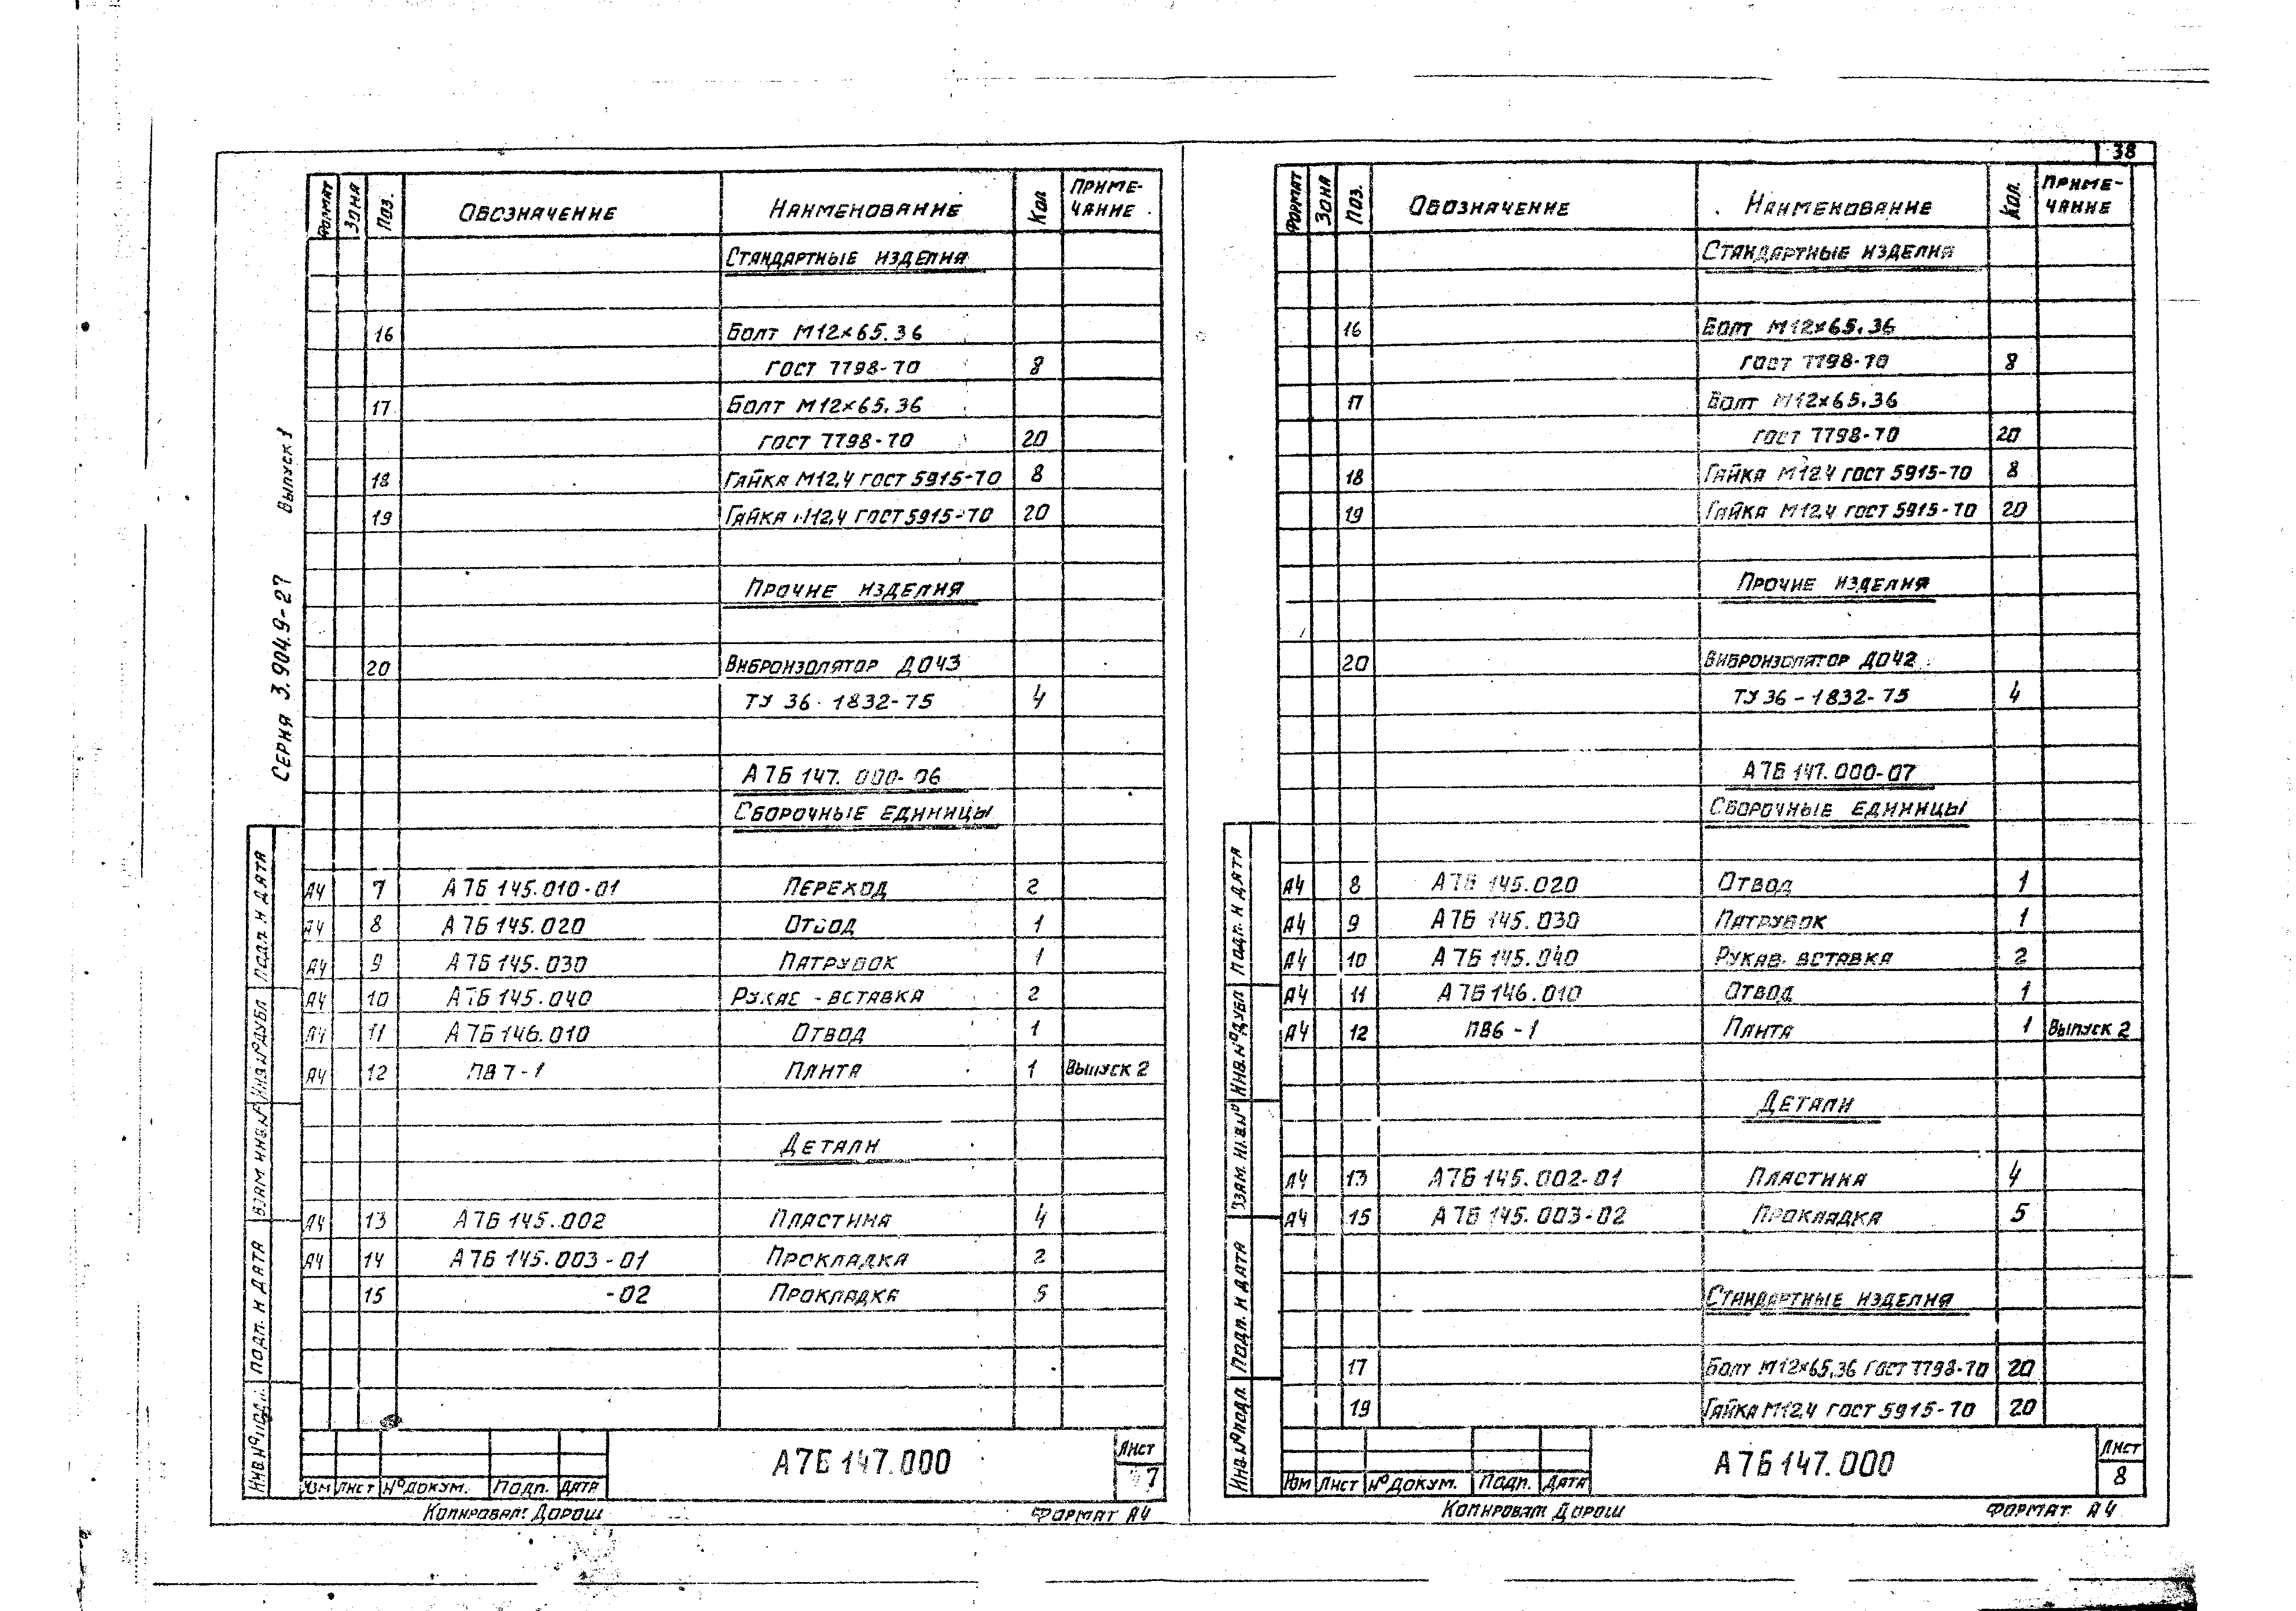 38
Серия 3.904.9-27 Выпуск 1
Формат Зона Поз. Обозначение Наименование Кол Приме-
чание
Стандартные изделия
16 Болт М12×65.36
ГОСТ 7798-70 8
17 Болт М12×65.36
ГОСТ 7798-70 20
18 Гайка М12.4 ГОСТ 5915-70 8
19 Гайка М12.4 ГОСТ 5915-70 20
Прочие изделия
20 Виброизолятор ДО43
ТУ 36-1832-75 4
А7Б 147.000-06
Сборочные единицы
А4 7 А7Б 145.010-01 Переход 2
А4 8 А7Б 145.020 Отвод 1
А4 9 А7Б 145.030 Патрубок 1
А4 10 А7Б 145.040 Рукав-вставка 2
А4 11 А7Б 146.010 Отвод 1
А4 12 ПВ7-1 Плита 1 Выпуск 2
Детали
А4 13 А7Б 145.002 Пластина 4
А4 14 А7Б 145.003-01 Прокладка 2
15 -02 Прокладка 5
Инв.№подл. Подп. и дата Взам инв.№ Инв.№дубл Подп. и дата
Изм Лист №докум. Подп. Дата
А7Б 147.000
Лист
7
Копировал: Дорош Формат А4
Формат Зона Поз. Обозначение Наименование Кол. Приме-
чание
Стандартные изделия
16 Болт М12×65.36
ГОСТ 7798-70 8
17 Болт М12×65.36
ГОСТ 7798-70 20
18 Гайка М12.4 ГОСТ 5915-70 8
19 Гайка М12.4 ГОСТ 5915-70 20
Прочие изделия
20 Виброизолятор ДО42
ТУ 36-1832-75 4
А7Б 147.000-07
Сборочные единицы
А4 8 А7Б 145.020 Отвод 1
А4 9 А7Б 145.030 Патрубок 1
А4 10 А7Б 145.040 Рукав-вставка 2
А4 11 А7Б 146.010 Отвод 1
А4 12 ПВ6-1 Плита 1 Выпуск 2
Детали
А4 13 А7Б 145.002-01 Пластина 4
А4 15 А7Б 145.003-02 Прокладка 5
Стандартные изделия
17 Болт М12×65.36 ГОСТ 7798-70 20
19 Гайка М12.4 ГОСТ 5915-70 20
Инв.№подл. Подп. и дата Взам. инв.№ Инв.№дубл Подп. и дата
Изм Лист №докум. Подп. Дата
А7Б 147.000
Лист
8
Копировал Дорош Формат А4